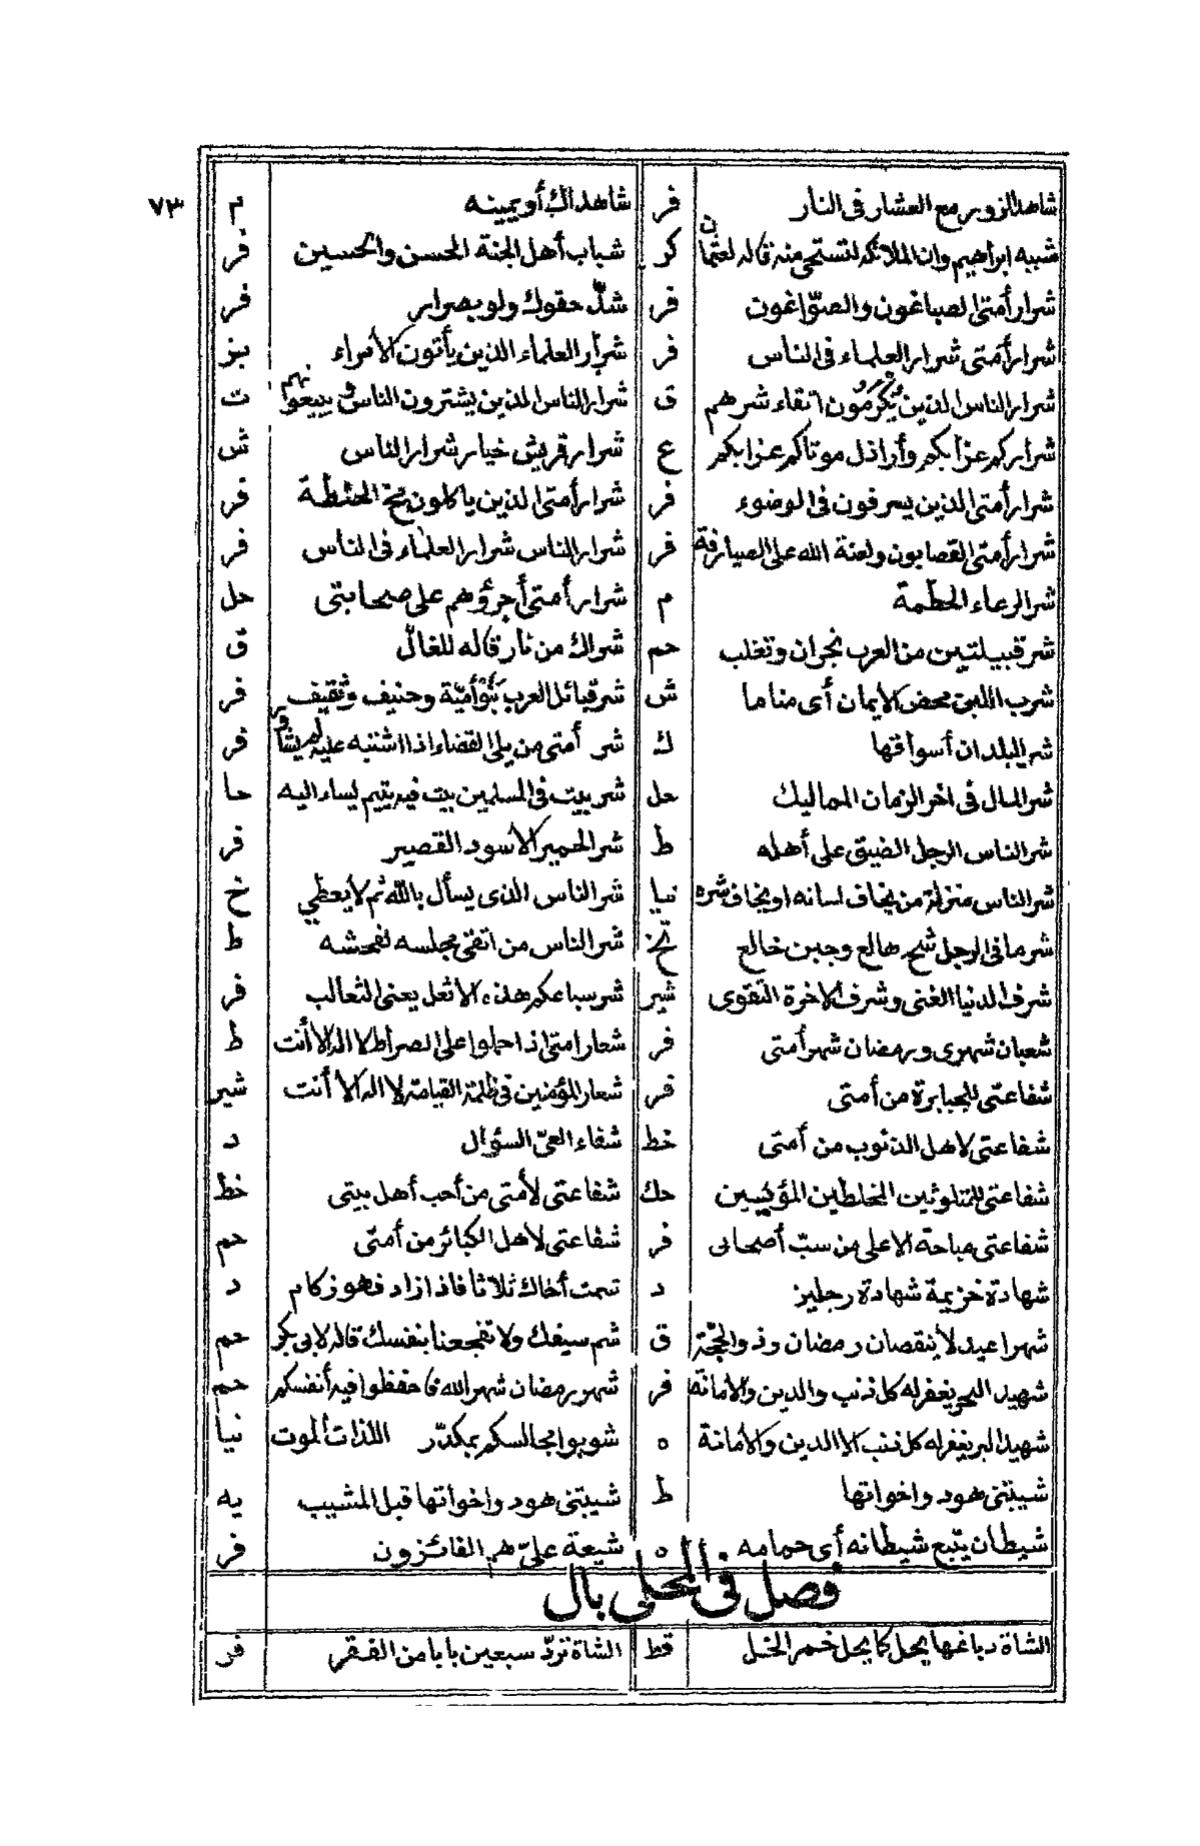 ٧٣
شاهد الزور مع العشار فى النار فر شاهداك أو يمينه م
شبيه ابراهيم وان الملائكة لتستحى منه قاله لعثمان كر شباب أهل الجنة الحسن والحسين فر
شرار أمتى الصباغون والصوّاغون فر شدّ حقوك ولو بصرار فر
شرار أمتى شرار العلماء فى الناس فر شرار العلماء الذين يأتون الأمراء بز
شرار الناس الذين يُكْرَمُون اتقاء شرهم ق شرار الناس الذين يشترون الناس و يبيعونهم ت
شراركم عزابكم وأراذل موتاكم عزابكم ع شرار قريش خيار شرار الناس ش
شرار أمتى الذين يسرفون فى الوضوء فر شرار أمتى الذين ياكلون مخ الحنطة فر
شرار أمتى القصابون ولعنة الله على الصيارفة فر شرار الناس شرار العلماء فى الناس فر
شر الرعاء الحطمة م شرار أمتى أجرؤهم على صحابتى حل
شر قبيلتين من العرب نجران وتغلب حم شراك من نار قاله للغالّ ق
شرب اللبن محض الايمان أى مناما ش شر قبائل العرب بَنُو أميّة وحنيف وثقيف فر
شر البلدان أسواقها ك شر أمتى من يلى القضاء اذا اشتبه عليه لم يشاور فر
شر المال فى اخر الزمان المماليك حل شر بيت فى المسلمين بيت فيه يتيم يساء اليه حا
شر الناس الرجل الضيق على أهله ط شر الحمير الأسود القصير فر
شر الناس منزلة من يخاف لسانه او يخاف شره نيا شر الناس الذى يسأل بالله ثم لا يعطي خ
شر ما فى الرجل شح هالع وجبن خالع تخ شر الناس من اتقى مجلسه لفحشه ط
شرف الدنيا الغنى وشرف الاخرة التقوى شير شر سباعكم هذه الاثعل يعنى الثعالب فر
شعبان شهرى ورمضان شهر أمتى فر شعار امتى اذا حملوا على الصراط لا اله الا أنت ط
شفاعتى للجبابرة من أمتى فر شعار المؤمنين فى ظلمة القيامة لا اله الا أنت شير
شفاعتى لاهل الذنوب من أمتى خط شفاء العىّ السؤال د
شفاعتى للمتلوثين المخلطين المؤيسين حك شفاعتى لأمتى من أحب أهل بيتى خط
شفاعتى مباحة الا على من سبّ أصحابى فر شفاعتى لاهل الكبائر من أمتى حم
شهادة خزيمة شهادة رجلين د شمت أخاك ثلاثا فاذا زاد فهو زكام د
شهرا عيد لا ينقصان رمضان وذو الحجّة ق شم سيفك ولا تفجعنا بنفسك قاله لابى بكر حم
شهيد البحر يغفر له كل ذنب والدين والامانة فر شهر رمضان شهر الله فاحفظوا فيه أنفسكم حم
شهيد البر يغفر له كل ذنب الا الدين والأمانة ه شوبوا مجالسكم بمكدّر اللذات الموت نيا
شيبتنى هود واخواتها ط شيبتنى هود واخواتها قبل المشيب يه
شيطان يتبع شيطانه أى حمامه ه شيعة علىّ هم الفائزون فر
فصل فى المحلى بال
الشاة دباغها يحل كما يحل خمر الخل قط الشاة تردّ سبعين بابا من الفقر فر